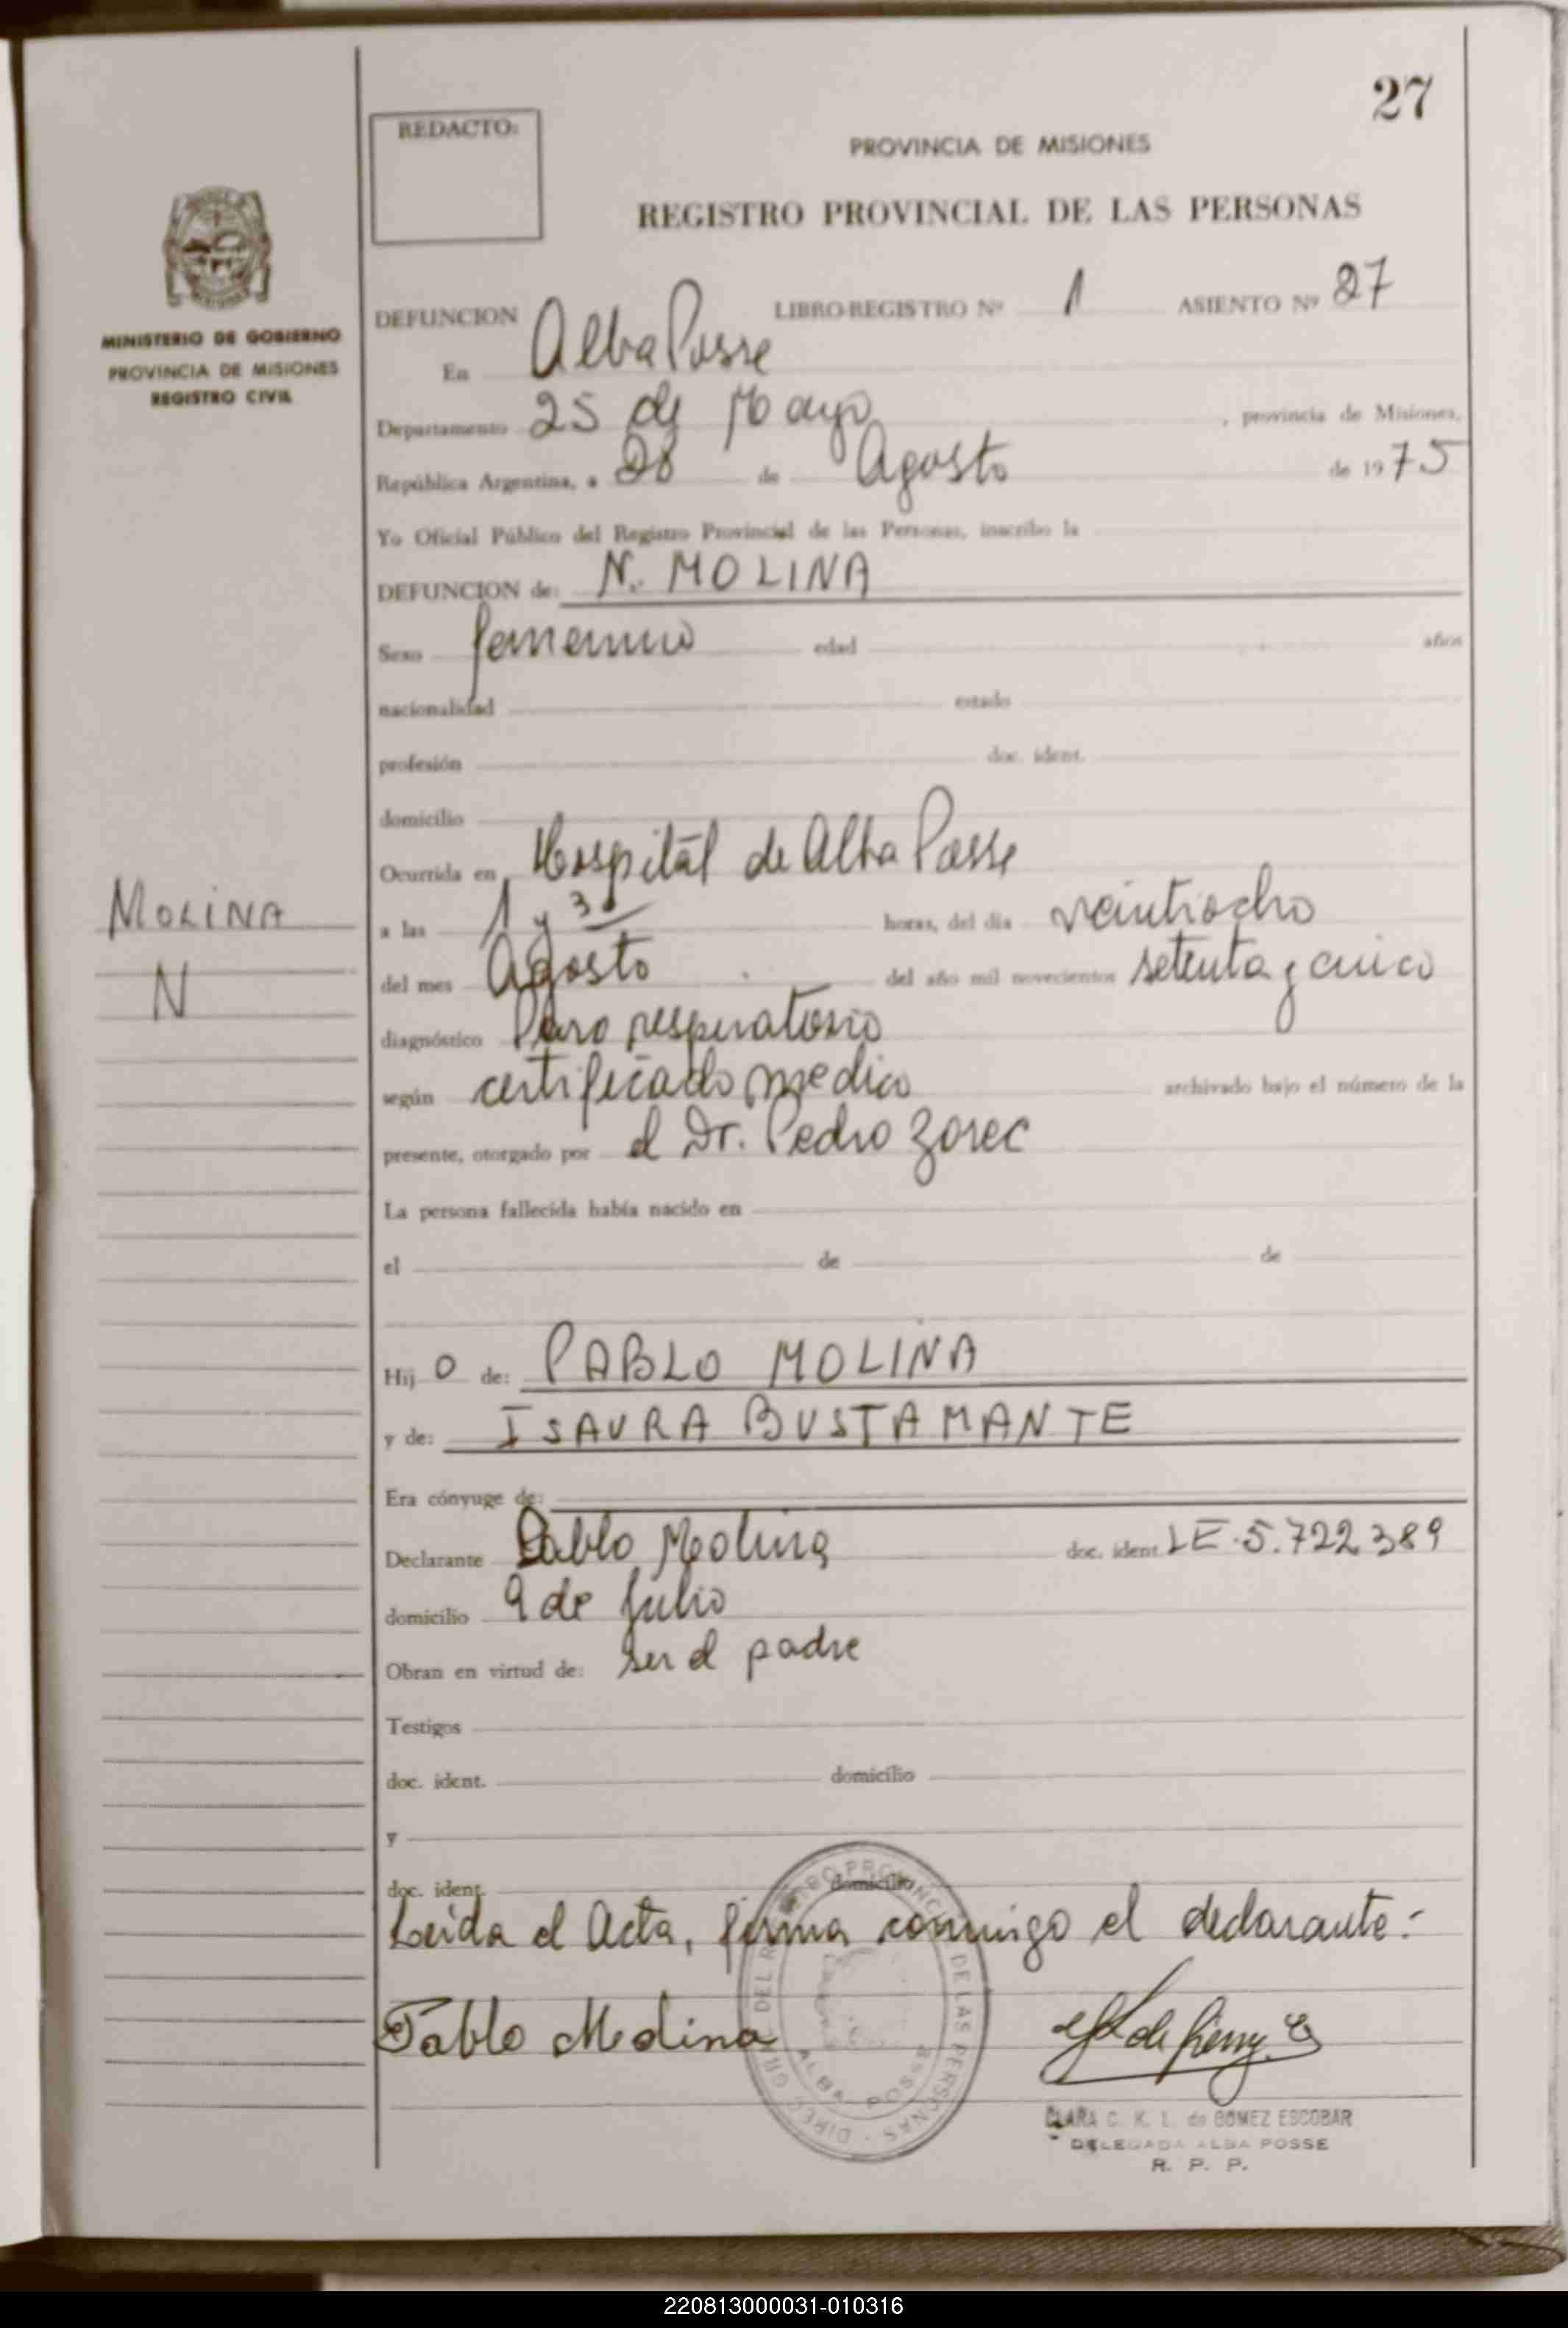 27
REDACTO:
PROVINCIA DE MISIONES
REGISTRO PROVINCIAL DE LAS PERSONAS
MINISTERIO DE GOBIERNO
PROVINCIA DE MISIONES
REGISTRO CIVIL
DEFUNCION LIBRO-REGISTRO Nº 1 ASIENTO Nº 27
En Alba Posse
Departamento 25 de Mayo, provincia de Misiones,
República Argentina, a 28 de Agosto de 1975
Yo Oficial Público del Registro Provincial de las Personas, inscribo la
DEFUNCION de: N. MOLINA
Sexo femenino edad años
nacionalidad estado
profesión doc. ident.
domicilio
Ocurrida en Hospital de Alba Posse
MOLINA
N
a las 1 y 30 horas, del día veintiocho
del mes Agosto del año mil novecientos setenta y cinco
diagnóstico Paro respiratorio
según certificado medico archivado bajo el número de la
presente, otorgado por el Dr. Pedro Zorec
La persona fallecida había nacido en
el de de
Hij o de: PABLO MOLINA
y de: ISAURA BUSTAMANTE
Era cónyuge de:
Declarante Pablo Molina doc. ident. LE. 5.722.389
domicilio 9 de Julio
Obran en virtud de: ser el padre
Testigos
doc. ident. domicilio
y
doc. ident. domicilio
Leida el Acta, firma conmigo el declarante:-
Pablo Medina
DIREC. GR. DEL REGISTRO PROVINCIAL DE LAS PERSONAS
ALBA POSSE
CLARA C. K. L. de GOMEZ ESCOBAR
DELEGADA ALBA POSSE
R. P. P.
220813000031-010316